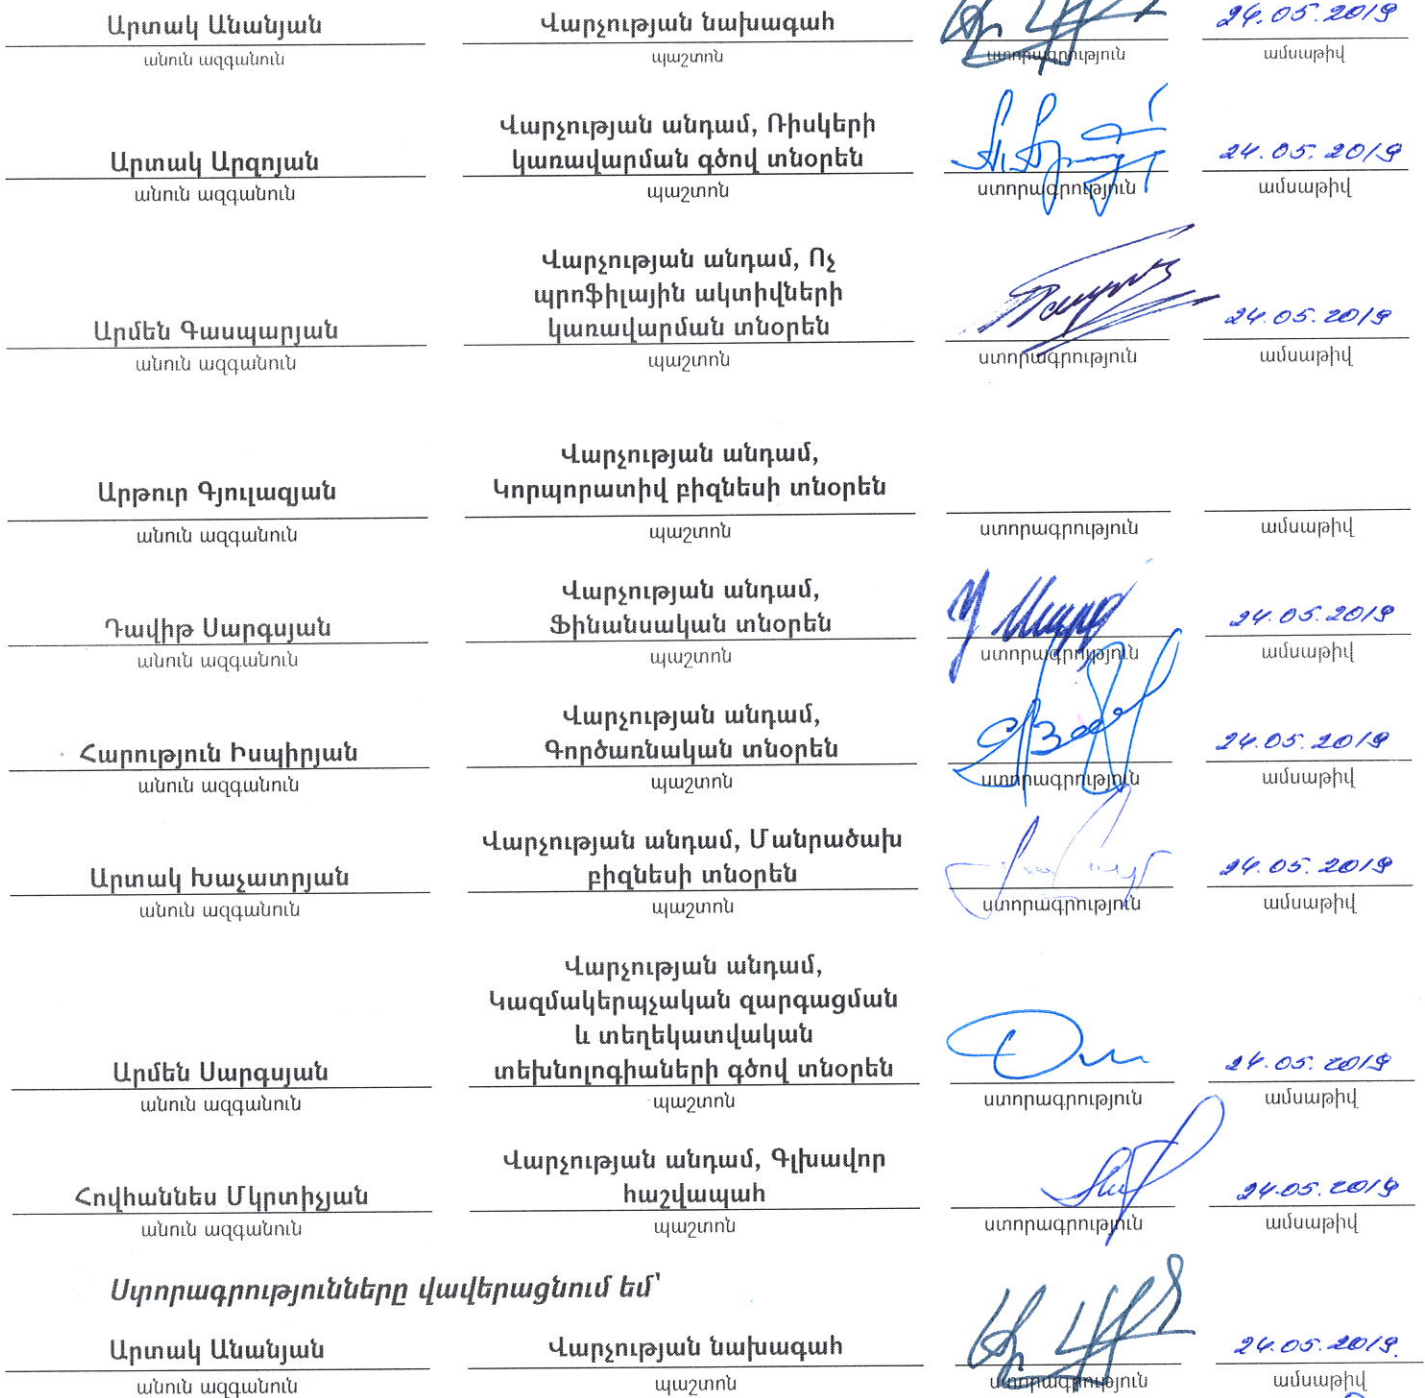 Արտակ Անանյան Վարչության նախագահ 24.05.2019
անուն ազգանուն պաշտոն ստորագրություն ամսաթիվ
Վարչության անդամ, Ռիսկերի
Արտակ Արզոյան կառավարման գծով տնօրեն 24.05.2019
անուն ազգանուն պաշտոն ստորագրություն ամսաթիվ
Վարչության անդամ, Ոչ
պրոֆիլային ակտիվների
Արմեն Գասպարյան կառավարման տնօրեն 24.05.2019
անուն ազգանուն պաշտոն ստորագրություն ամսաթիվ
Վարչության անդամ,
Արթուր Գյուլազյան Կորպորատիվ բիզնեսի տնօրեն
անուն ազգանուն պաշտոն ստորագրություն ամսաթիվ
Վարչության անդամ,
Դավիթ Սարգսյան Ֆինանսական տնօրեն 24.05.2019
անուն ազգանուն պաշտոն ստորագրություն ամսաթիվ
Վարչության անդամ,
Հարություն Իսպիրյան Գործառնական տնօրեն 24.05.2019
անուն ազգանուն պաշտոն ստորագրություն ամսաթիվ
Վարչության անդամ, Մանրածախ
Արտակ Խաչատրյան բիզնեսի տնօրեն 24.05.2019
անուն ազգանուն պաշտոն ստորագրություն ամսաթիվ
Վարչության անդամ,
Կազմակերպչական զարգացման
և տեղեկատվական
Արմեն Սարգսյան տեխնոլոգիաների գծով տնօրեն 24.05.2019
անուն ազգանուն պաշտոն ստորագրություն ամսաթիվ
Վարչության անդամ, Գլխավոր
Հովհաննես Մկրտիչյան հաշվապահ 24.05.2019
անուն ազգանուն պաշտոն ստորագրություն ամսաթիվ
Ստորագրությունները վավերացնում եմ՝
Արտակ Անանյան Վարչության նախագահ 24.05.2019.
անուն ազգանուն պաշտոն ստորագրություն ամսաթիվ